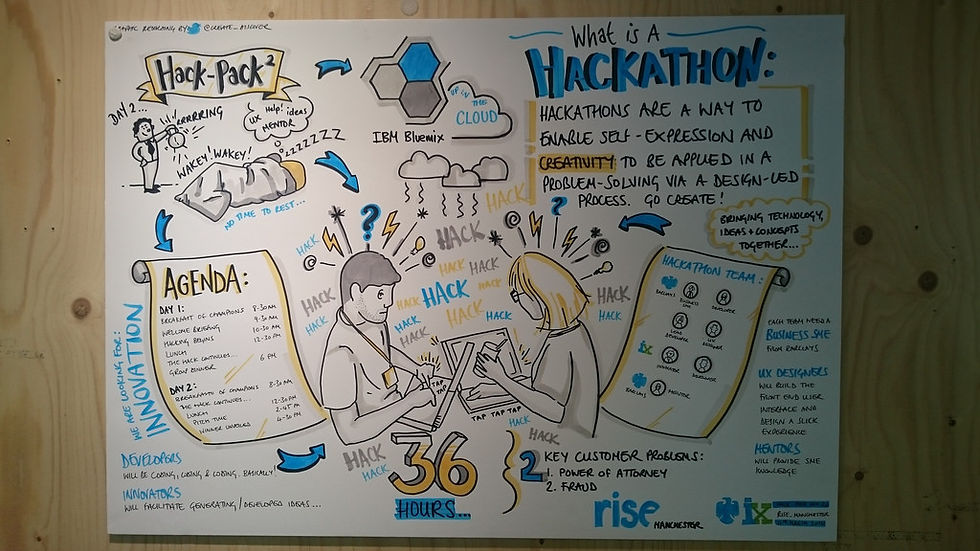 GRAPHIC RECORDING BY @CREATE_DISCOVER
Hack-Pack²
DAY 2...
RRRRRING
WAKEY! WAKEY!
UX Help! ideas
MENTOR
ZZZZZZZ
NO TIME TO REST...
IBM Bluemix
UP IN
THE
CLOUD
What is A
HACKATHON:
HACKATHONS ARE A WAY TO
ENABLE SELF-EXPRESSION AND
CREATIVITY TO BE APPLIED IN A
PROBLEM-SOLVING VIA A DESIGN-LED
PROCESS. GO CREATE!
BRINGING TECHNOLOGY,
IDEAS + CONCEPTS
TOGETHER...
WE ARE LOOKING FOR:
INNOVATION
AGENDA:
DAY 1:
BREAKFAST OF CHAMPIONS 8-30AM
WELCOME BRIEFING 9-30AM
HACKING BEGINS 10-30AM
LUNCH 12-30PM
THE HACK CONTINUES...
GROUP DINNER 6 PM
DAY 2:
BREAKFAST OF CHAMPIONS 8-30AM
THE HACK CONTINUES...
LUNCH 12-30PM
PITCH TIME 2-45PM
WINNER UNVEILED 4-30PM
HACK
HACK
HACK
HACK
HACK
HACK HACK
HACK HACK HACK
HACK HACK
HACK HACK HACK
HACK HACK
HACK
TAP
TAP
TAP TAP TAP
HACK
HACK
HACK
HACK
HACKATHON TEAM:
BARCLAYS
BUSINESS
SME
DEVELOPER
LEAD
DEVELOPER
UX
DESIGNER
ix
INNOVATOR
DEVELOPER
BARCLAYS
MENTOR
EACH TEAM NEED A
BUSINESS SME
FROM BARCLAYS
UX DESIGNERS
WILL BUILD THE
FRONT END USER
INTERFACE AND
DESIGN A SLICK
EXPERIENCE
MENTORS
WILL PROVIDE SME
KNOWLEDGE
DEVELOPERS
WILL BE CODING, CODING & CODING. BASICALLY!
INNOVATORS
WILL FACILITATE GENERATING/DEVELOPED IDEAS...
36
HOURS...
2 KEY CUSTOMER PROBLEMS:
1. POWER OF ATTORNEY
2. FRAUD
rise
MANCHESTER
ix
RISE_MANCHESTER